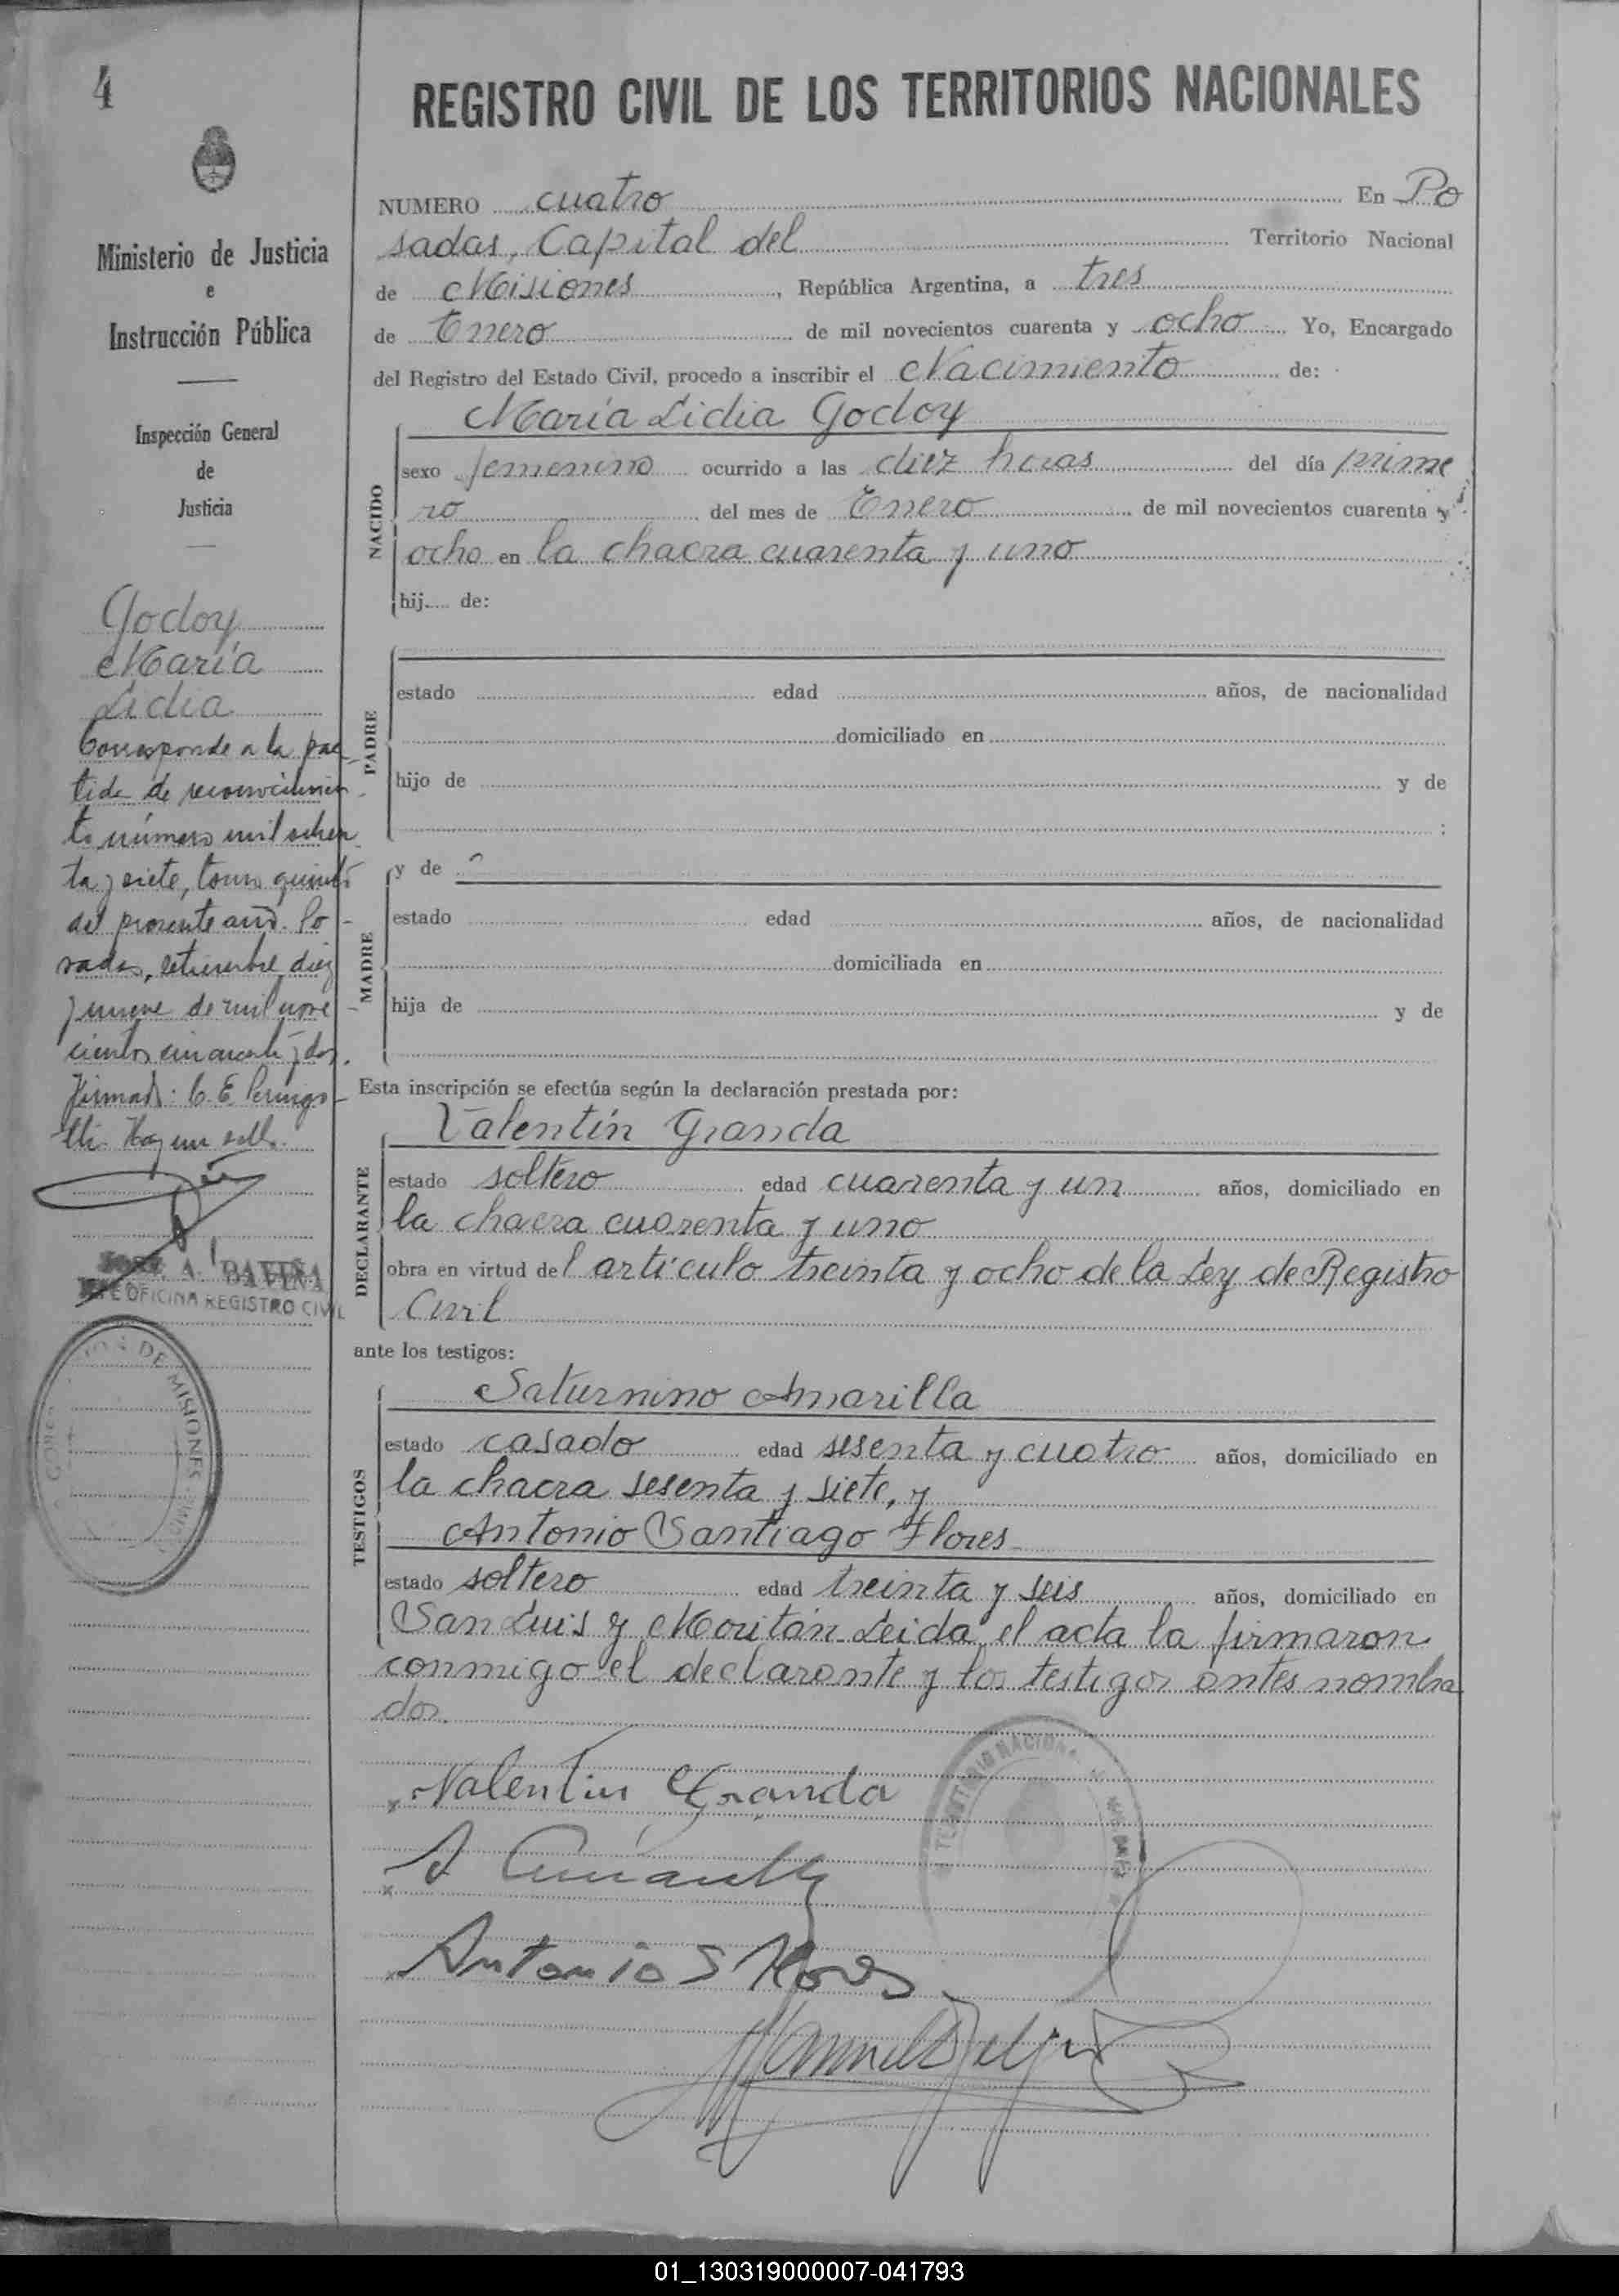 4
REGISTRO CIVIL DE LOS TERRITORIOS NACIONALES
Ministerio de Justicia
e
Instrucción Pública
Inspección General
de
Justicia
NUMERO cuatro En Po
sadas, Capital del Territorio Nacional
de Misiones, República Argentina, a tres
de Enero de mil novecientos cuarenta y ocho Yo, Encargado
del Registro del Estado Civil, procedo a inscribir el Nacimiento de:
María Lidia Godoy
NACIDO
sexo femenino ocurrido a las diez horas del día prime
ro del mes de Enero de mil novecientos cuarenta y
ocho en la chacra cuarenta y uno
hij.... de:
PADRE
estado edad años, de nacionalidad
domiciliado en
hijo de y de
;
y de
MADRE
estado edad años, de nacionalidad
domiciliada en
hija de y de
Esta inscripción se efectúa según la declaración prestada por:
Valentín Granda
DECLARANTE
estado soltero edad cuarenta y un años, domiciliado en
la chacra cuarenta y uno
obra en virtud del artículo treinta y ocho de la Ley de Registro
Civil
ante los testigos:
TESTIGOS
Saturnino Amarilla
estado casado edad sesenta y cuatro años, domiciliado en
la chacra sesenta y siete, y
Antonio Santiago Flores
estado soltero edad treinta y seis años, domiciliado en
San Luis y Moritán. Leida el acta la firmaron
conmigo el declarante y los testigos antes nombra
dos.
Valentin Granda
Antonio S Flores
Godoy
María
Lidia
Corresponde a la par
tida de reconocimien
to número mil ochen
ta y siete, tomo quinto
del presente año. Po
sadas, setiembre diez
y nueve de mil nove
cientos cincuenta y dos.
Firmado: C. E. 
Hay un sello.
JOSE A. DAVIÑA
JEFE OFICINA REGISTRO CIVIL
DE MISIONES
TERRITORIO NACIONAL
01_130319000007-041793